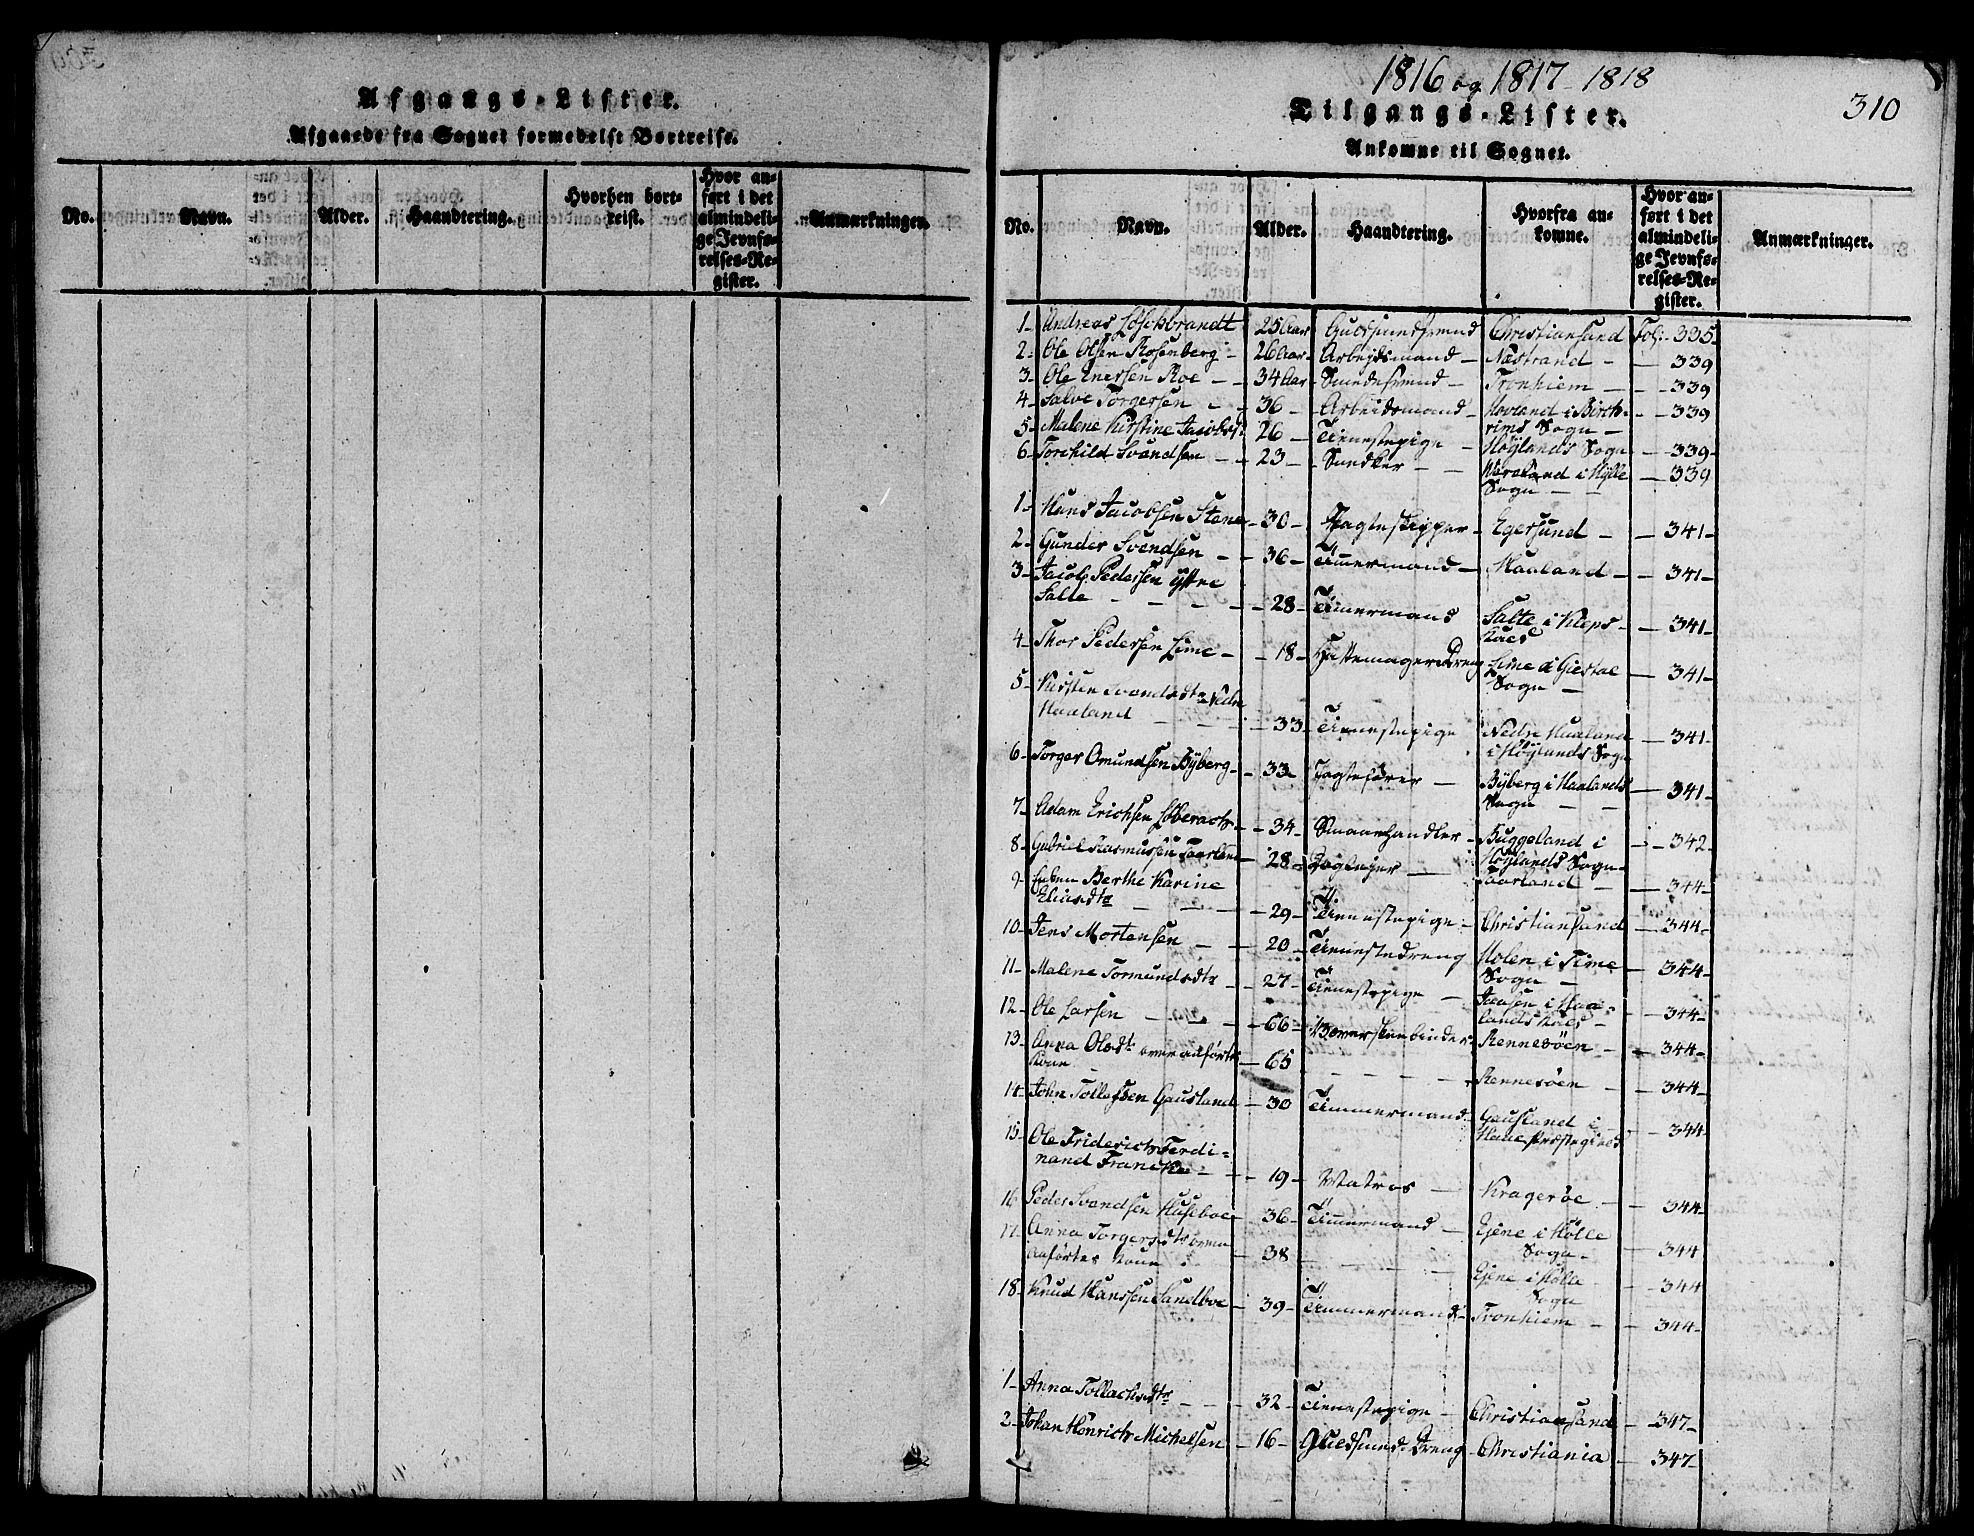 Afgangs-Lister.
Afgaaede fra Sognet formedelst Bortreise.
No. Navn. Alder. Haandtering. Hvorhen bortreist. Hvor anført i det almindelige Jevnførelses-Register. Anmærkninger.
1816 og 1817 - 1818
310
Tilgangs-Lister.
Ankomne til Sognet.
No. Navn. Alder. Haandtering. Hvorfra ankomne. Hvor anført i det almindelige Jevnførelses-Register. Anmærkninger.
1- Andreas 25 Aar Christiansand Fol: 335
2- Ole Olsen Rosenberg - 26 Aar- Arbejdsmand - Nastrand - 339
3- Ole Enersen Roe - 34 Aar - Smedesvend - Tronhiem - 339
4- Salve Torgersen - 36 - Arbeidsmand - Hovland i Birch-
rims Sogn - 339
5- Malene Kirstine Jacobs: 26 - Tienestepige - Höylands Sogn - 339-
6- Torchild Svendsen - 23 - Snedker - i Hölle - 339
Sogn
1- Hans Jacobsen Stene - 30 - Jagteskipper - Egersund - 341-
2- Gunder Svendsen - 36 - Timermand - Haaland - 341-
3- Jacob Pedersen ÿttre
Salte - 28 - Timermand Salte i Kleps - 341-
4- Thor Pedersen Lime - 18 - Hattemager Dreng Lime i Giestal - 341-
Sogn
5- Kirsten Svendsdtr Nedre
Haaland - 33 - Tienestepige Nedre Haaland - 341-
i Höÿlands Sogn
6- Torger Omundsen Bÿberg - 33 - Jagtefører - Bÿberg i Haalands - 341-
Sogn
7- Adam Erichsen - 34 - Smaaehandler - Buggeland i - 342-
Höÿlands Sogn
8- Gabriel Rasmussen Taarland - 28 - Jagteejer - Taarland - 344-
9- Berthe Karine
Eliasdtr - 29 - Tienestepige - Christiansand - 344-
10- Jens Mortensen - 20 - Tienestedreng Holen i Time - 344-
Sogn
11- Malene Tormundsdtr - 27 - Tienestepige - i Haa-
lands - 344-
12- Ole Larsen - 66 - Rennesöen - 344-
13- Anna Olsdt. oven anførtes
Kone - 65 - Rennesöen - 344-
14- John Tollefsen Gausland - 30 Timmermand - Gausland i - 344-
15- Ole Friderich Ferdi-
nand Francke - 19 - Matros - Kragerøe - 344-
16- Peder Svendsen Huseboe - 36 - Timermand - Ejene i Hölle - 344
Sogn-
17- Anna Torgersdtr oven
anførtes Kone - 38 - Ejene i Hölle - 344
Sogn
18- Knud Hanssen Sandboe - 39 - Timmermand - Tronhiem - 344-
1- Anna Tollachsdtr - 32 - Tienestepige - Christiansand - 347-
2- Johan Hinrich Michelsen - 16 - Guldsmed Dreng - Christiania - 347-